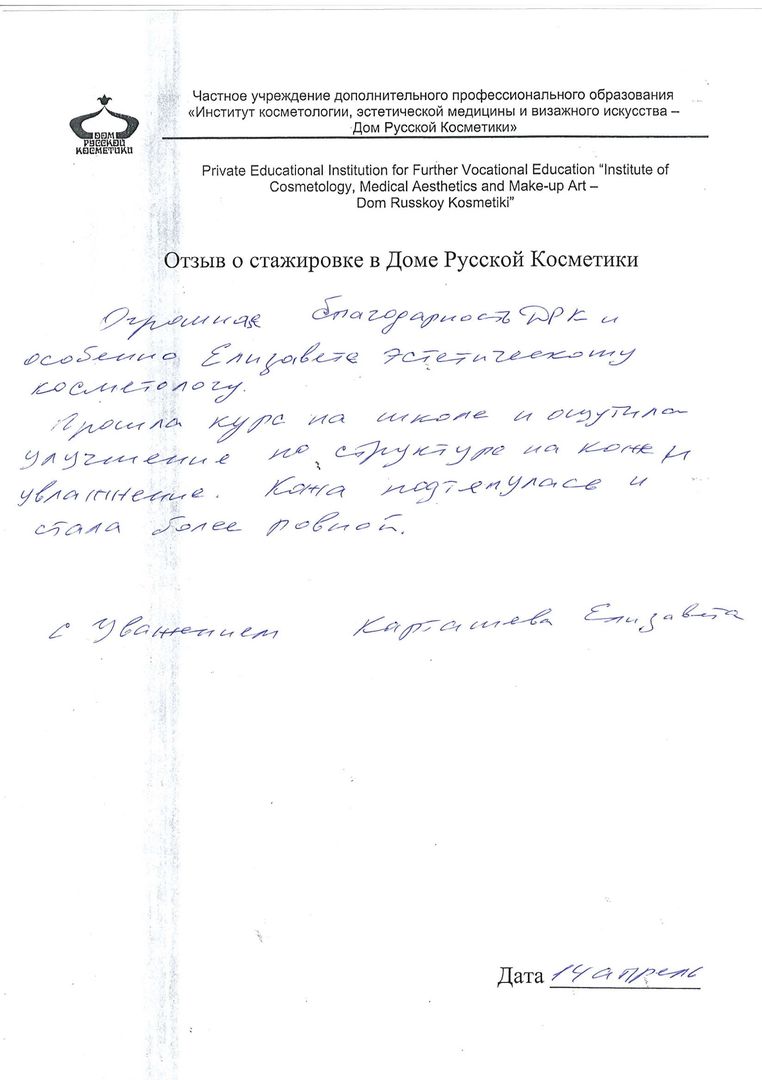 Частное учреждение дополнительного профессионального образования
«Институт косметологии, эстетической медицины и визажного искусства –
Дом Русской Косметики»
ДОМ
РУССКОЙ
КОСМЕТИКИ
Private Educational Institution for Further Vocational Education “Institute of
Cosmetology, Medical Aesthetics and Make-up Art –
Dom Russkoy Kosmetiki”
Отзыв о стажировке в Доме Русской Косметики
Огромная благодарность ДРК и
особенно Елизавете эстетическому
косметологу.
Прошла курс на школе и ощутила
улучшение по структуре на коже и
увлажнение. Кожа подтянулась и
стала более ровной.
с Уважением Карташева Елизавета
Дата 14 апрель